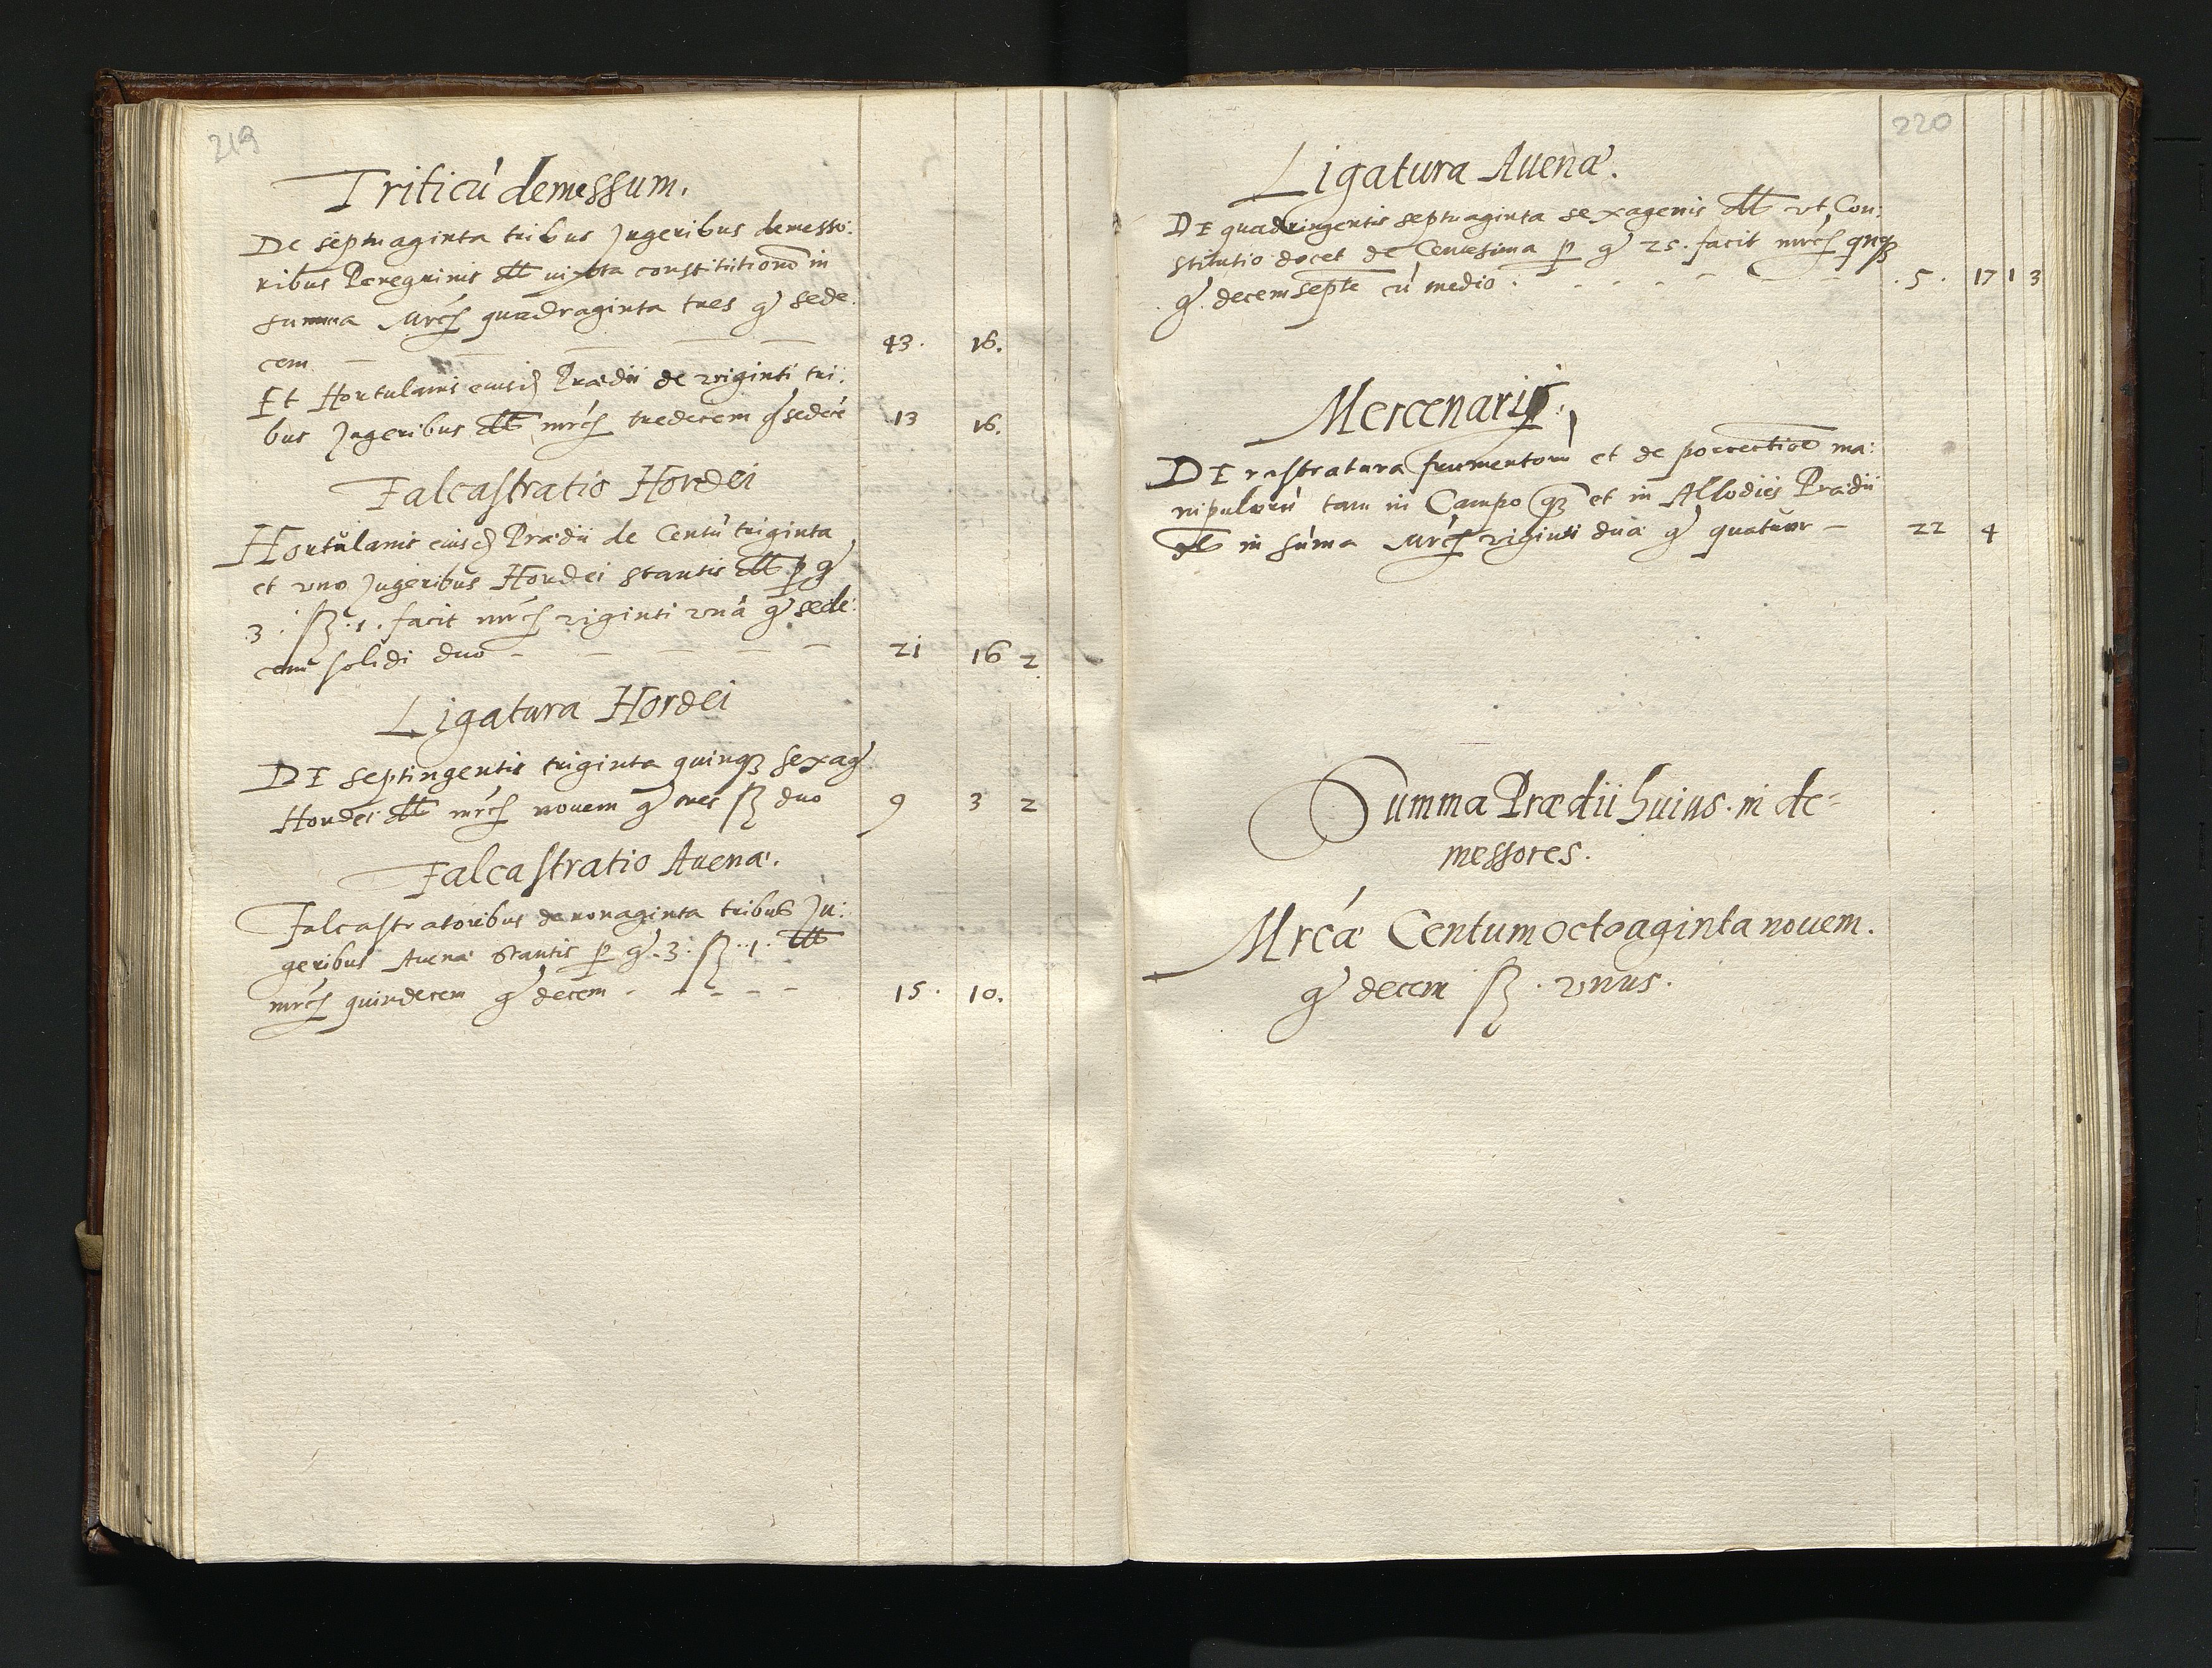 219
Triticú demessum.
De septuaginta tribus Jugeribus demesso:
ribus Peregrinis dtt iuxta constitutionē in
summa Mrcs quadraginta tres g sede:
cem 43. 16.
Et Hortulanis eiusd Prædii de viginti tri:
bus Jugeribus dtt mrcs tredecem g sedecē 13 16.
Falcastratio Hordei
Hortulanis eiusd Prædii de Centú triginta
et vno Jugeribus Hordei stantis dtt p g
3. ß. 1. facit mrcs viginti vná g sede:
cem solidi duo 21 16 2.
Ligatura Hordei
DE septingentis triginta quinqȝ sexag
Hordei dtt mrcs nouem g tres ß duo 9 3 2
Falcastratio Auenæ.
Falcastratoribus de nonaginta tribus Ju:
geribus Auenæ stantis p g. 3. ß. 1. dtt
mrcs quindecem g decem 15. 10.
220
Ligatura Auenæ.
DE quadringentis septuaginta sexagenis dtt vt Con:
stitutio docet de Centesima p g 25. facit mrcs qnqȝ
g. decem septē cú medio. 5. 17 1 3
Mercenarii.
DE rastratura frumentorú et de porrectioē ma:
nipulorú tam in Campo qȝ et in Allodiis Prædii
dtt in súma Mrcs viginti duæ g quatuor 22 4
Summa Prædii huius in de=
messores.
Mrcæ Centum octoaginta nouem.
g decem ß. vnus.